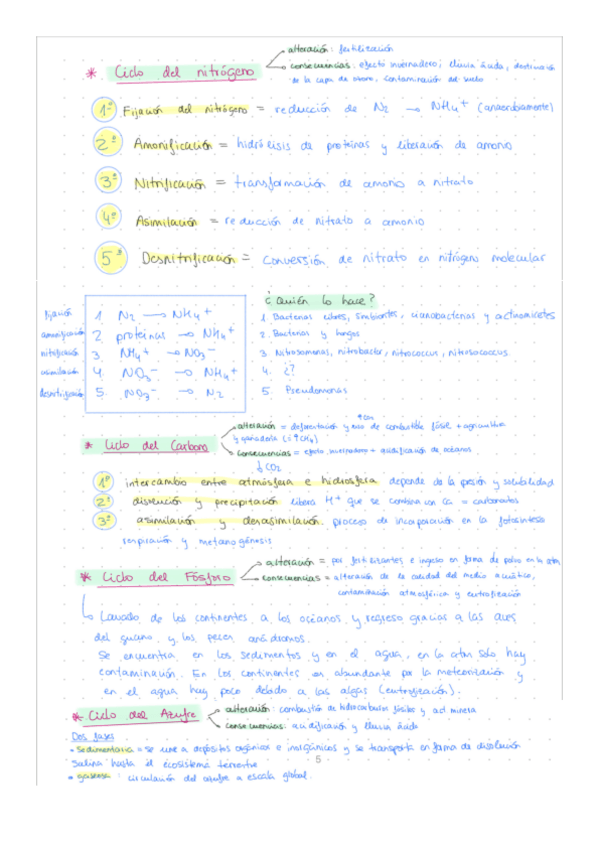 alteración: fertilización
* Ciclo del nitrógeno
consecuencias: efecto invernadero; lluvia ácida, destrucción
de la capa de ozono, contaminación del suelo
1º Fijación del nitrógeno = reducción de N2 → NH4+ (anaerobiamente)
2º Amonificación = hidrólisis de proteinas y liberación de amonio
3º Nitrificación = transformación de amonio a nitrato
4º Asimilación = reducción de nitrato a amonio
5º Desnitrificación = conversión de nitrato en nitrógeno molecular
fijación 1. N2 → NH4+
amonificación 2. proteinas → NH4+
nitrificación 3. NH4+ → NO3-
asimilación 4. NO3- → NH4+
desnitrificación 5. NO3- → N2
¿quién lo hace?
1. Bacterias libres, simbiontes, cianobacterias y actinomicetes
2. Bacterias y hongos
3. Nitrosomonas, nitrobacter, nitrococcus, nitrosococcus
4. ¿?
5. Pseudomonas
alteración = deforestación y uso de combustible fósil + agricultura
y ganadería (↑CH4)
* Ciclo del Carbono
consecuencias = efecto invernadero + acidificación de océanos
↓CO2
1º intercambio entre atmósfera e hidrosfera depende de la presión y solubilidad
2º disolución y precipitación libera H+ que se combina con Ca = carbonatos
3º asimilación y desasimilación. proceso de incorporación en la fotosíntesis
respiración y metanogénesis
alteración = por fertilizantes e ingreso en forma de polvo en la atm
* Ciclo del Fósforo
consecuencias = alteración de la calidad del medio acuático,
contaminación atmosférica y eutrofización
Lavado de los continentes a los océanos y regreso gracias a las aves
del guano y los peces anádromos.
Se encuentra en los sedimentos y en el agua, en la atm solo hay
contaminación. En los continentes es abundante por la meteorización y
en el agua hay poco debido a las algas (eutrofización).
alteración: combustión de hidrocarburos fósiles y act minera
* Ciclo del Azufre
consecuencias: acidificación y lluvia ácida
Dos fases
• Sedimentaria = se une a depósitos orgánicos e inorgánicos y se transporta en forma de disolución
salina hasta el ecosistema terrestre
5
• gaseosa: circulación del azufre a escala global.